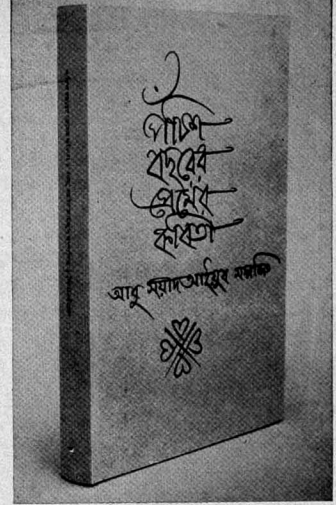 পঁচিশ
বছরের
প্রেমের
কবিতা
আবু সয়ীদ আইয়ুব সম্পাদিত